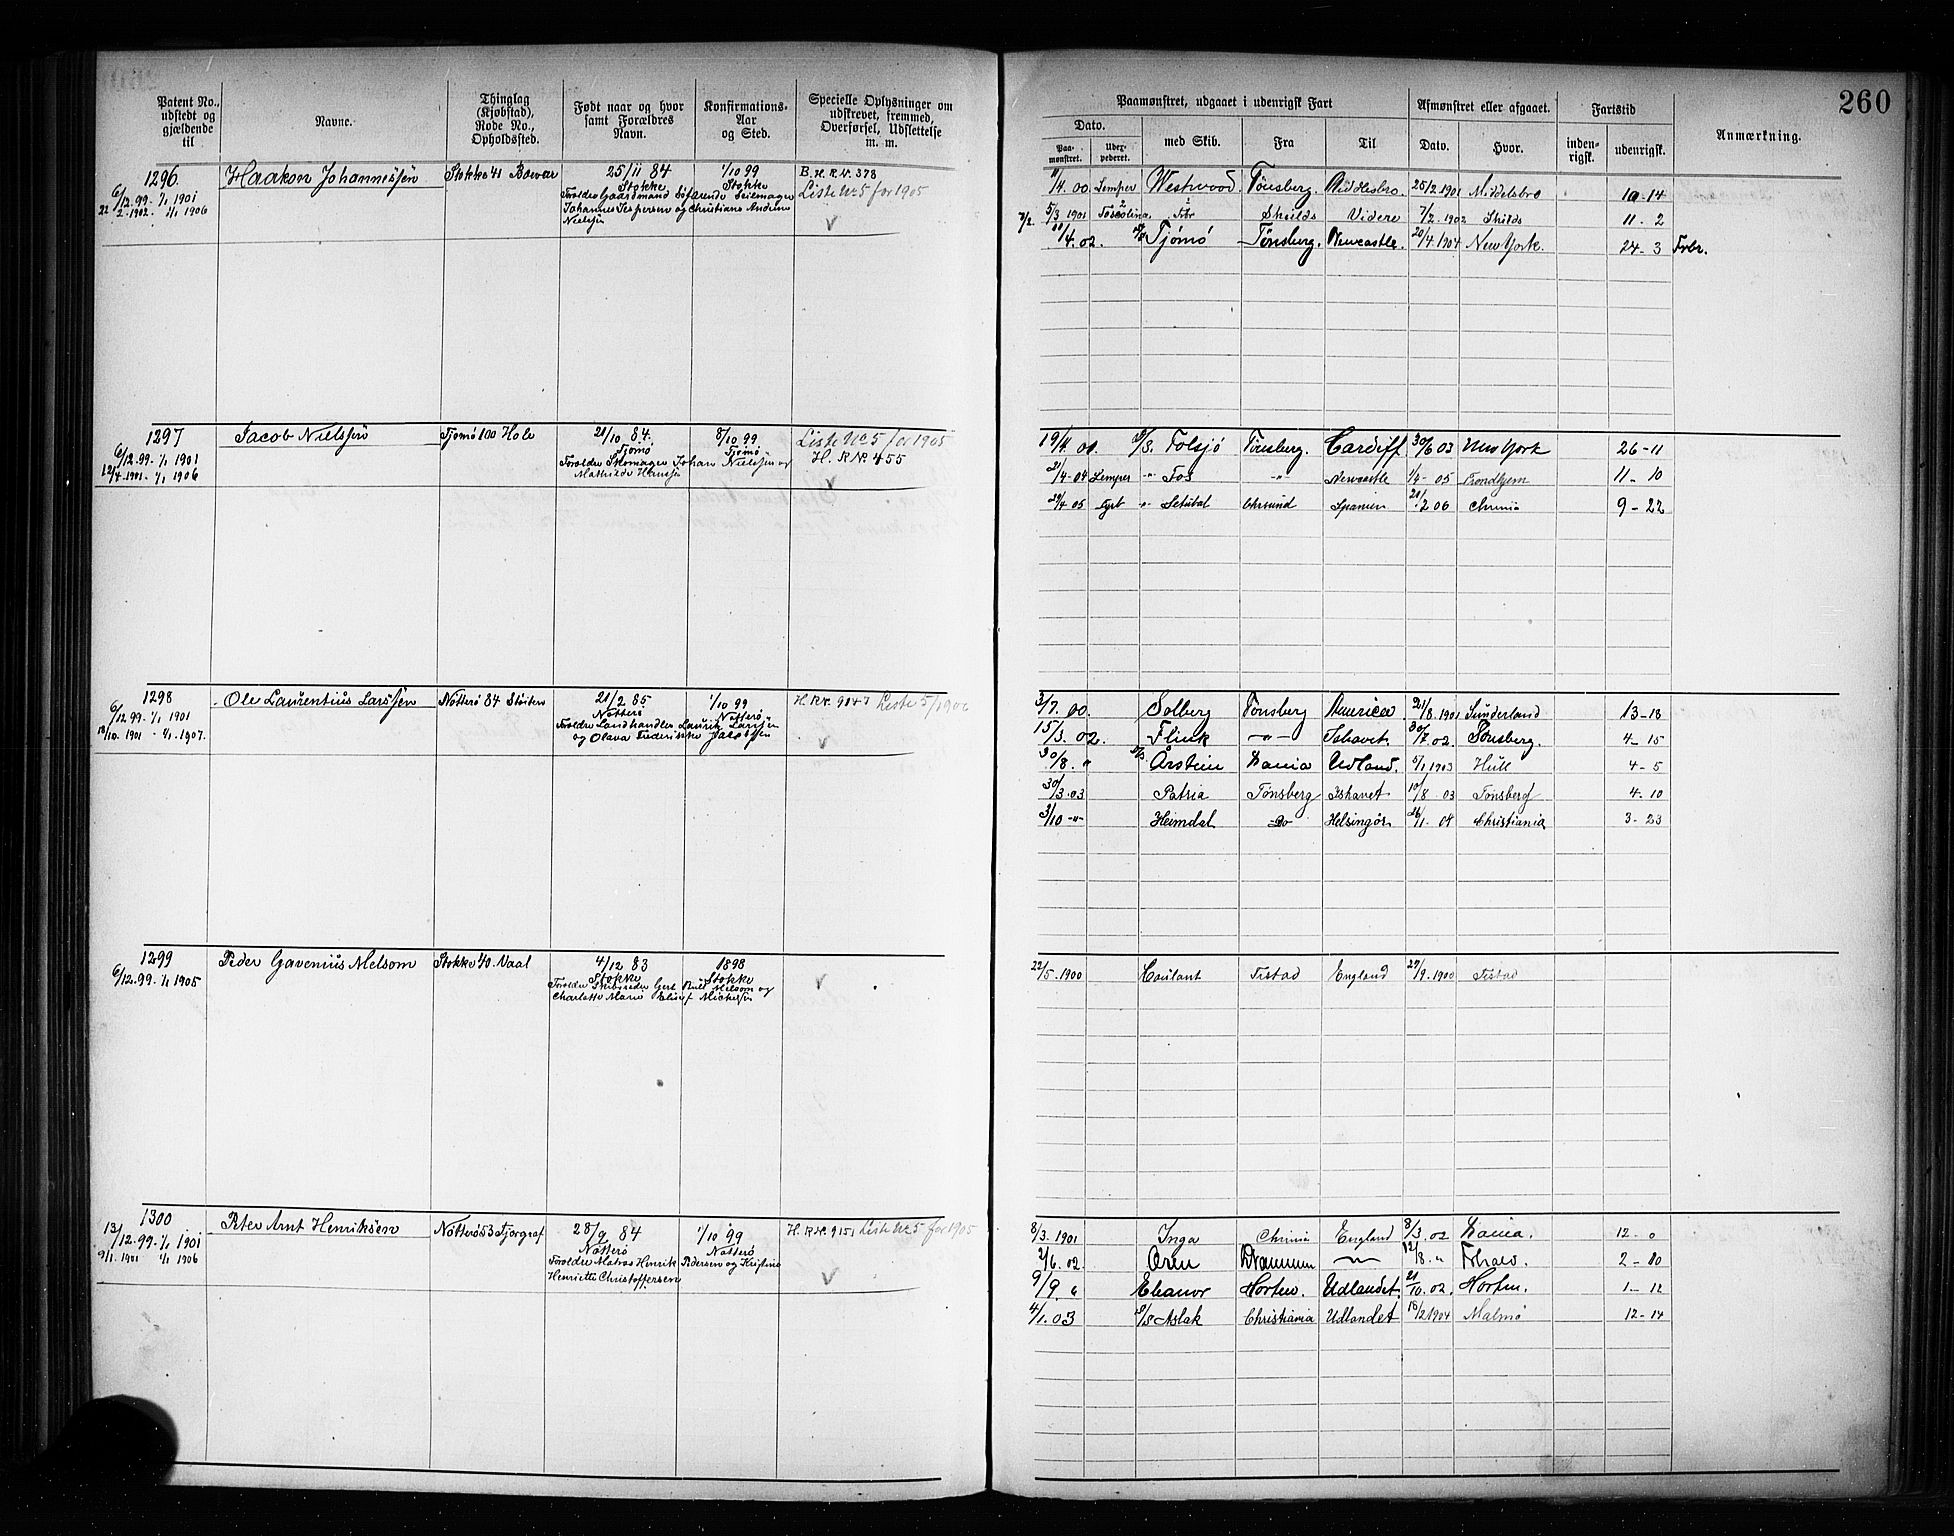 260
Patent No., udstedt og gjældende til
Navne.
Thinglag (Kjøbstad), Rode No., Opholdssted.
Født naar og hvor samt Forældres Navn.
Konfirmations-Aar og Sted.
Specielle Oplysninger om udskrevet, fremmed, Overførsel, Udslettelse m. m.
Paamønstret, udgaaet i udenrigsk Fart
Dato.
Paa-mønstret.
med Skib.
Fra
Til
Afmønstret eller afgaaet.
Dato.
Hvor.
Fartstid
inden-rigsk.
udenrigsk.
Anmærkning.
1296.
6/12.99. 1/1 1901
22/2.1902. 1/1 1906
Haakon Johannessen
Stokke 41
25/11 84
Stokke
Forældre Gaardmand
Johannes Jespersen og Christiane Andrine
Nielsen
1/10 99
Stokke
B. H. R. Nr. 378
Liste No 5 for 1905
V
11/4.00. Westwood. Tønsberg. Middlesbro. 25/2.1901 Middelsbro 10-14
7/2. 5/3 1901 Shields Videre 7/2.1902 Shilds 11-2
4.02. Tjømø Tønsberg. Newcastle. 20/4.1904 New York. 24-3
1297
6/12.99. 1/1 1901
12/4.1901. 1/1 1906
Jacob Nielssen
Tjømø 100 Hole
21/10 84.
Tjømø
Forældre Skomager Johan Nielssen og
Mathilde Hanssen
8/10 99
Tjømø
Liste No 5 for 1905
H. R. No. 455
V
19/4.01. S/S. Folsjø Tønsberg. Cardiff 30/6 03 New York 26-11
21/4-04 " Fos " Newcastle 1/4-05 Trondhjem 11-10
29/4 05 " Setubal Chrsund Spanien 21/2 06 Chrnia 9-22
1298
6/12.99. 1/1 1901
10.1901 1/1.1907.
Ole Laurentius Larssen
Nøtterø 84
21/2 85
Nøtterø
Forældre Landhandler Laurits Larssen
og Olava Frederikke Jacobssen
1/10 99
Nøtterø
H. R. Nr. 9047 Liste 5/1906
V
3/7.00. Solberg Tønsberg America 21/8.1901 Sunderland 13-18
15/3.02. Flink -"- Ishavet. 30/7.02. Tønsberg. 4-15
30/8. " Årstein Xania Udland. 5/1 1903 Hull 4-5
30/3.03 Patria Tønsberg Ishavet 10/8 03 Tønsberg 4-10
3/10 -"- Heimdal Do Helsingør 26/1.04 Christiania 3-23
1299
6/12.99. 1/1 1905
Peder Gavenius Melsom
Stokke 40. Vaal
4/12 83
Stokke
Forældre Skibsreder Gert Bull Melsom og
Charlotte Marie
1898
Stokke
V
22/5.1900 Coulant England 29/9.1900
1300
13/12.99. 1/1 1901
9/1.1901 1/1 1906
Peter Arnt Henriksen
Nøtterø 53
28/9 84
Nøtterø
Forældre Matros Henrik Pedersen og Kristine
Henriette Christoffersen
1/10 99
Nøtterø
H. R. No. 9151 Liste No 5 for 1905
V
8/3.1901 Inga Chrnia England 8/3.02 Xania. 12-0
2/6.02 Oren Drammen 12/8. " 2-10
9/9. " Eleanor Horten. Udlandet. 21/10.02. Horten. 1-12
4/1.03 S/S Aslak Christiania Udlandet 18/2 1904 Malmø 12-14